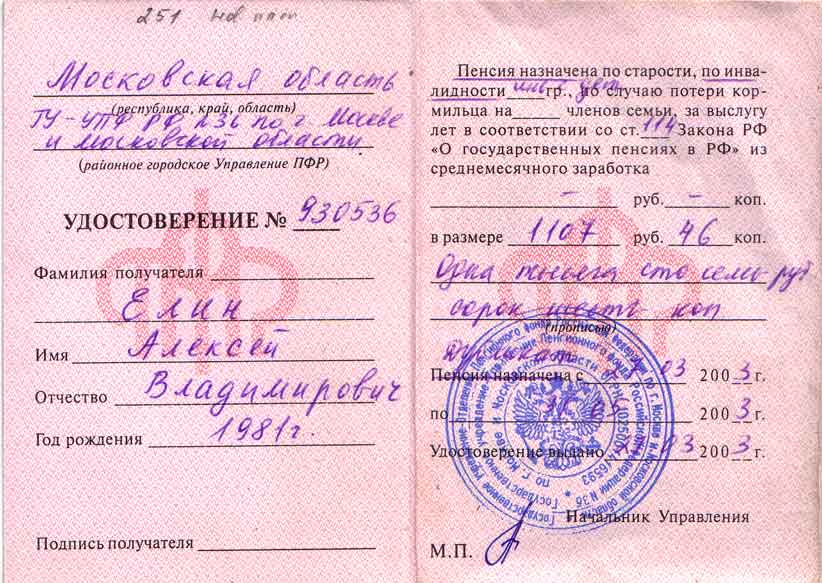 251
Московская область
(республика, край, область)
ГУ-УПФ РФ №36 по г. Москве
и Московской области
(районное городское Управление ПФР)
УДОСТОВЕРЕНИЕ № 930536
Фамилия получателя
Елин
Имя Алексей
Отчество Владимирович
Год рождения 1981г.
Подпись получателя
Пенсия назначена по старости, по инва-
лидности инв. с дет. гр., по случаю потери кор-
мильца на членов семьи, за выслугу
лет в соответствии со ст. 114 Закона РФ
«О государственных пенсиях в РФ» из
среднемесячного заработка
– руб. – коп.
в размере 1107 руб. 46 коп.
Одна тысяча сто семь руб
сорок шесть коп
(прописью)
Дубликат
Пенсия назначена с 03 2003 г.
по 2003 г.
Удостоверение выдано 03 2003 г.
Начальник Управления
М.П.